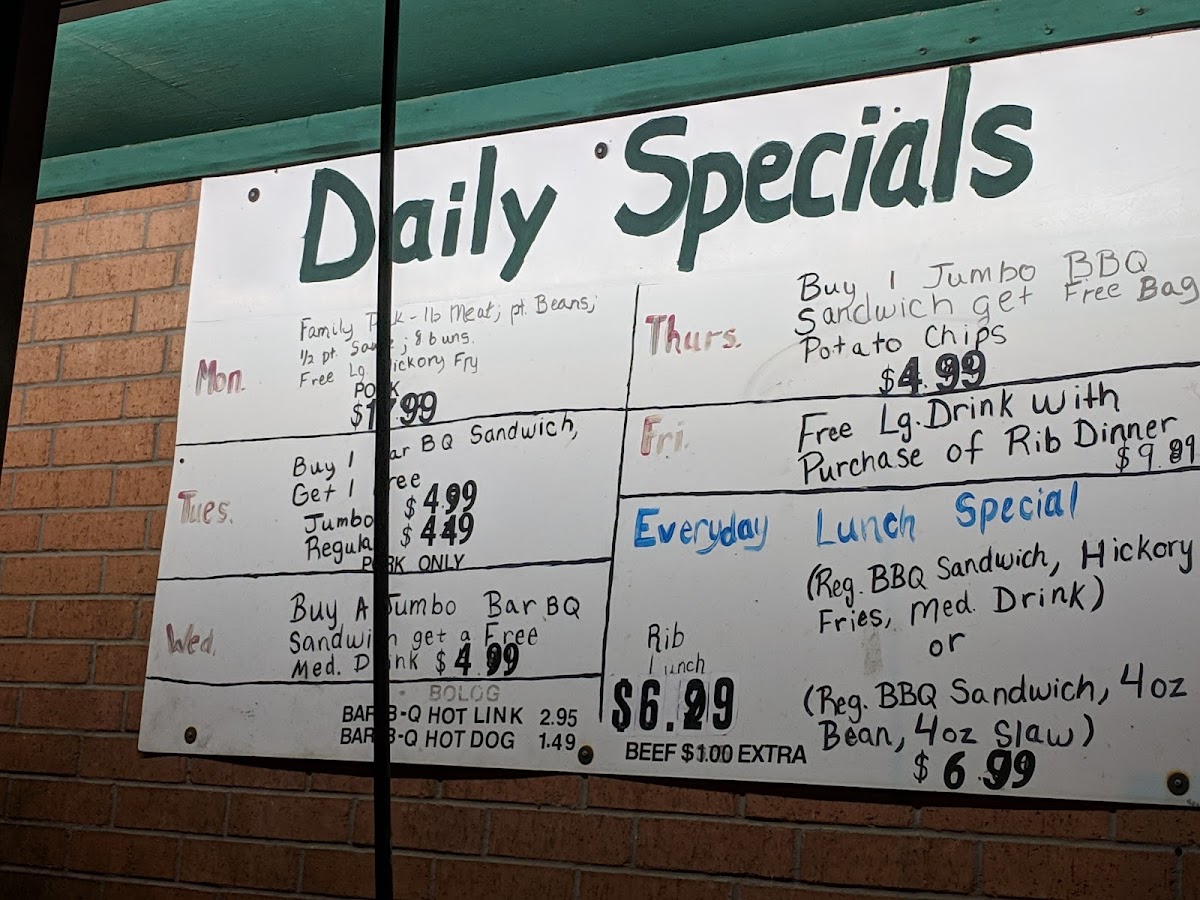 Daily Specials
Mon.
Family P k - 1lb Meat; pt. Beans;
1/2 pt. Sau e; 8 buns.
Free Lg. ickory Fry
PO K
$1 .99
Tues.
Buy 1 ar BQ Sandwich,
Get 1 ree
Jumbo $4.99
Regula $4.49
P RK ONLY
Wed.
Buy A Jumbo Bar BQ
Sandwi h get a Free
Med. D ink $4.99
BOLOG
BAR B-Q HOT LINK 2.95
BAR B-Q HOT DOG 1.49
Thurs.
Buy 1 Jumbo BBQ
Sandwich get Free Bag
Potato Chips
$4.99
Fri.
Free Lg. Drink with
Purchase of Rib Dinner
Everyday Lunch Special
(Reg. BBQ Sandwich, Hickory
Fries, Med. Drink)
or
(Reg. BBQ Sandwich, 4oz
Bean, 4oz Slaw)
$6.99
Rib
Lunch
BEEF $1.00 EXTRA